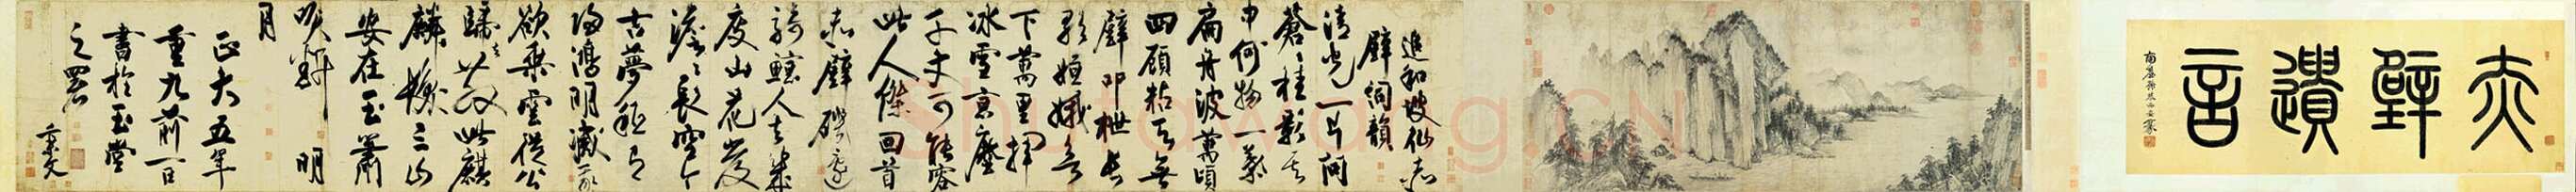 赤壁遺音
追和坡仙赤
壁詞韻
清光一片問
蒼蒼桂影其
中何物一葉
扁舟波萬頃
四顧粘天無
壁叩枻長
歌姮娥欲
下萬里揮
冰雪京塵
千丈可能容
此人傑回首
赤壁磯邊
騎鯨人去幾
度山花發
澹澹長空今
古夢秪有
歸鴻明滅我
欲乘雲從公
歸去散此麒
麟髮三山
安在玉簫
吹斷明
月
正大五年
重九前一日
書於玉堂
之署
秉文